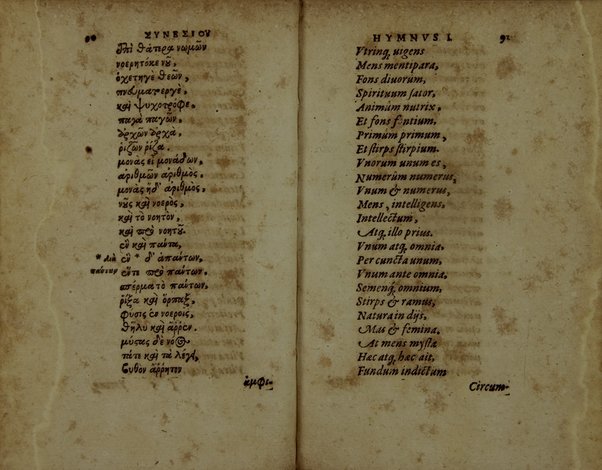 90 ΣΥΝΕΣΙΟΥ
ἐπὶ θάτερα νωμῶν
νοερητόκε νοῦ,
ὀχετηγὲ θεῶν,
πνευματεργὲ,
καὶ ψυχοτρόφε,
παγὰ παγῶν,
ἀρχῶν ἀρχὰ,
ῥιζῶν ῥίζα.
μονὰς εἶ μονάδων,
ἀριθμῶν ἀριθμὸς,
μονὰς ἠδ' ἀριθμὸς,
νοῦς καὶ νοερὸς,
καὶ τὸ νοητὸν,
καὶ πρὸ νοητοῦ.
ἓν καὶ πάντα,
* διὰ πάντων
ἓν * δ' ἁπάντων,
ἕν τι πρὸ πάντων,
σπέρμα τὸ πάντων,
ῥίζα καὶ ὅρπαξ,
φύσις ἐν νοεροῖς,
θῆλυ καὶ ἄῤῥεν.
μύστας δὲ νόος
τά τε καὶ τὰ λέγει,
βυθὸν ἄῤῥητον
ἀμφι-
HYMNVS I. 91
Vtrinq, uigens
Mens mentipara,
Fons diuorum,
Spirituum sator,
Animûm nutrix,
Et fons fontium,
Primûm primum,
Et stirps stirpium.
Vnorum unum es,
Numerûm numerus,
Vnum & numerus,
Mens, intelligens,
Intellectum,
Atq, illo prius.
Vnum atq, omnia.
Per cuncta unum,
Vnum ante omnia,
Semenq, omnium,
Stirps & ramus,
Natura in dijs,
Mas & femina,
At mens mystæ
Hæc atq, hæc ait,
Fundum indictum
Circum-